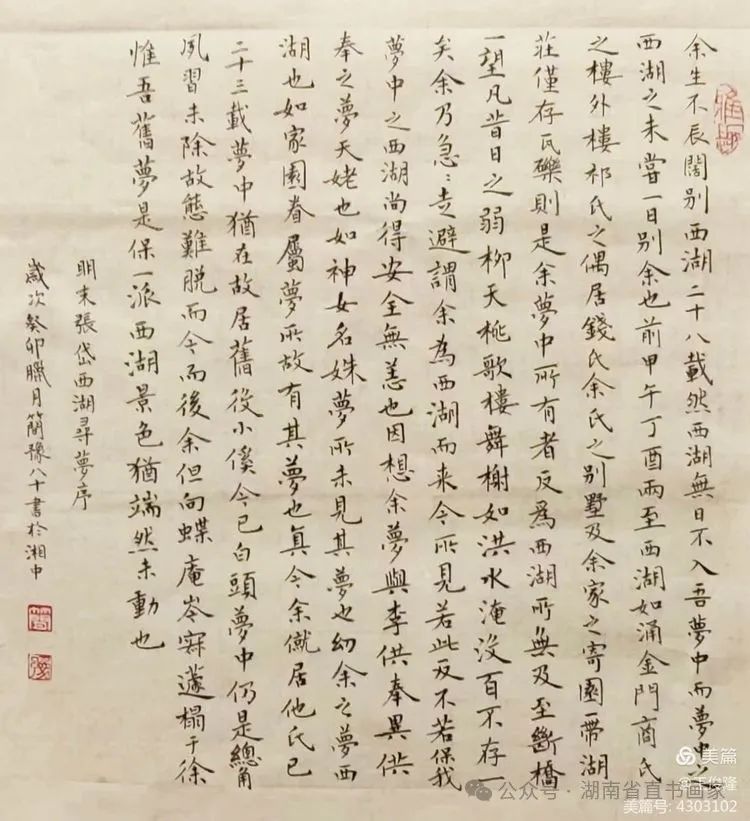 余生不辰闊别西湖二十八載然西湖無日不入吾夢中而夢中之
西湖之未嘗一日别余也前甲午丁酉兩至西湖如涌金門商氏
之樓外樓祁氏之偶居錢氏余氏之别墅及余家之寄園一帶湖
莊僅存瓦礫則是余夢中所有者反爲西湖所無及至斷橋
一望凡昔日之弱柳夭桃歌樓舞榭如洪水淹没百不存一
矣余乃急〻走避謂余為西湖而来今所見若此反不若保我
夢中之西湖尚得安全無恙也因想余夢與李供奉異供
奉之夢天姥也如神女名姝夢所未見其夢也幻余之夢西
湖也如家園眷屬夢所故有其夢也真今余僦居他氏已
二十三載夢中猶在故居舊役小傒今已白頭夢中仍是總角
夙習未除故態難脱而今而後余但向蝶庵岑寂蘧榻于徐
惟吾舊夢是保一派西湖景色猶端然未動也
明末張岱西湖尋夢序
歲次癸卯臘月簡豫八十書於湘中
美篇
公众号 · 湖南省直书画家
美篇号: 4303102